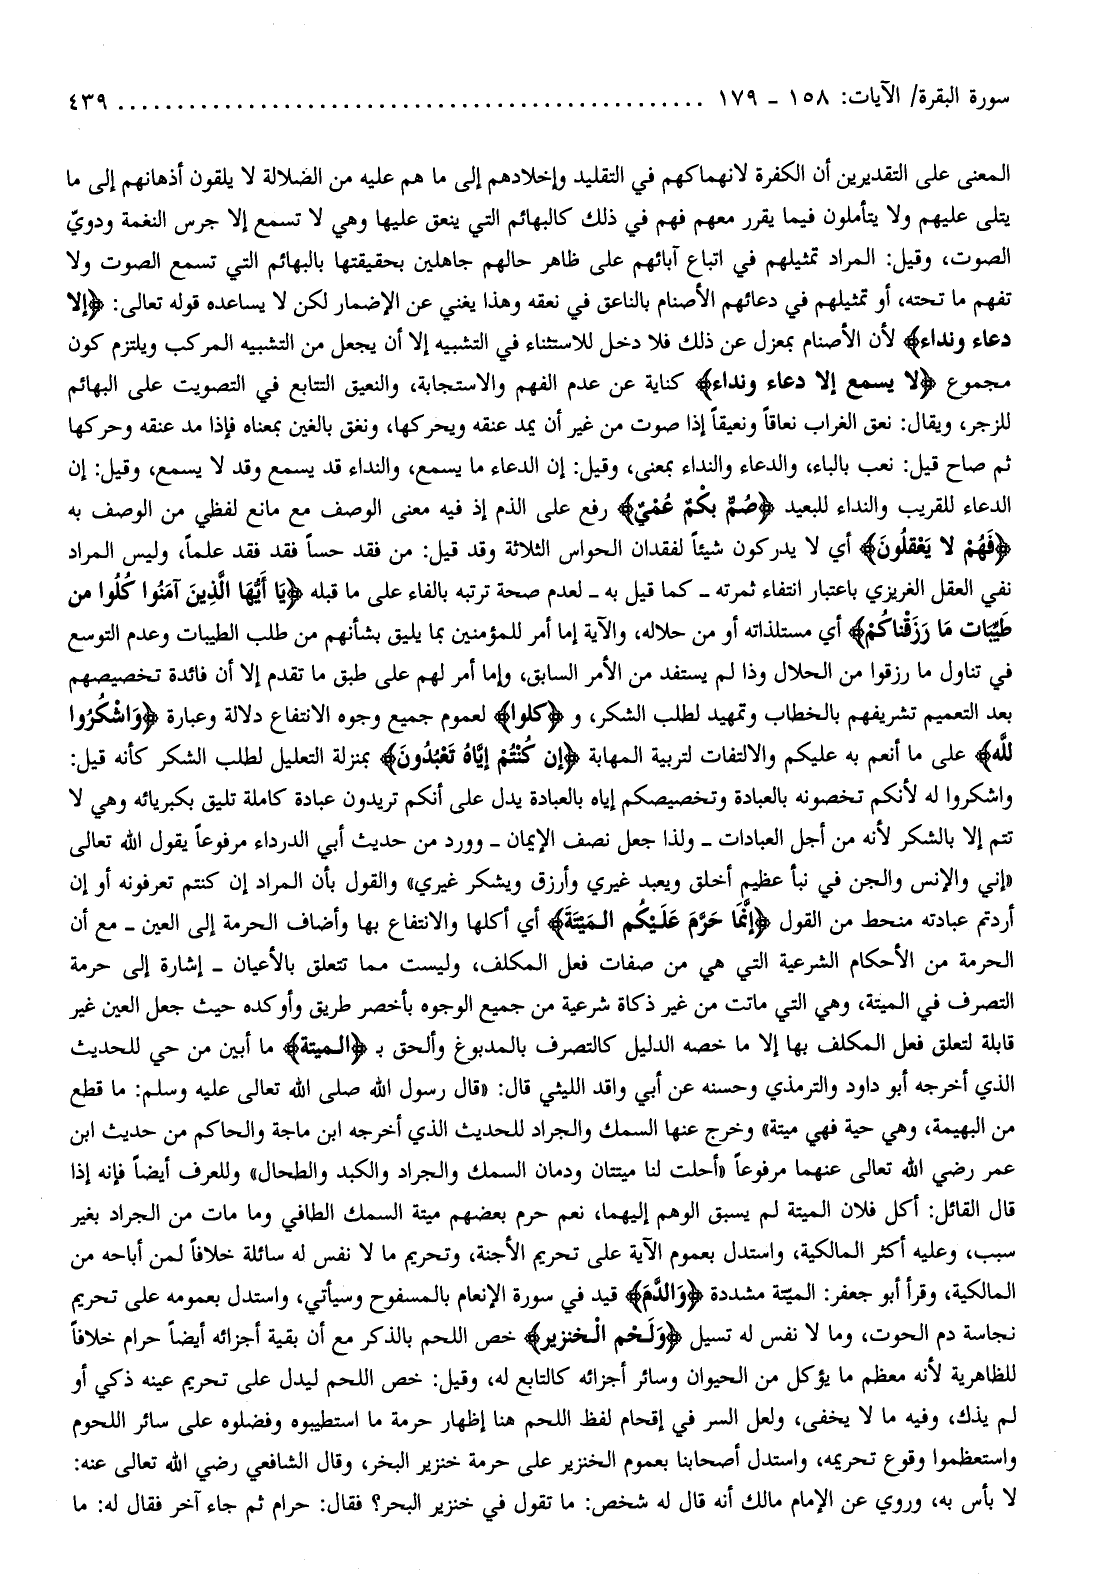 سورة البقرة/ الآيات: ١٥٨ ـ ١٧٩ .................................................. ٤٣٩
المعنى على التقديرين أن الكفرة لانهماكهم في التقليد وإخلادهم إلى ما هم عليه من الضلالة لا يلقون أذهانهم إلى ما
يتلى عليهم ولا يتأملون فيما يقرر معهم فهم في ذلك كالبهائم التي ينعق عليها وهي لا تسمع إلا جرس النغمة ودويّ
الصوت، وقيل: المراد تمثيلهم في اتباع آبائهم على ظاهر حالهم جاهلين بحقيقتها بالبهائم التي تسمع الصوت ولا
تفهم ما تحته، أو تمثيلهم في دعائهم الأصنام بالناعق في نعقه وهذا يغني عن الإضمار لكن لا يساعده قوله تعالى: ﴿إلا
دعاء ونداء﴾ لأن الأصنام بمعزل عن ذلك فلا دخل للاستثناء في التشبيه إلا أن يجعل من التشبيه المركب ويلتزم كون
مجموع ﴿لا يسمع إلا دعاء ونداء﴾ كناية عن عدم الفهم والاستجابة، والنعيق التتابع في التصويت على البهائم
للزجر، ويقال: نعق الغراب نعاقاً ونعيقاً إذا صوت من غير أن يمد عنقه ويحركها، ونغق بالغين بمعناه فإذا مد عنقه وحركها
ثم صاح قيل: نعب بالباء، والدعاء والنداء بمعنى، وقيل: إن الدعاء ما يسمع، والنداء قد يسمع وقد لا يسمع، وقيل: إن
الدعاء للقريب والنداء للبعيد ﴿صُمٌّ بكْمٌ عُمْيٌ﴾ رفع على الذم إذ فيه معنى الوصف مع مانع لفظي من الوصف به
﴿فَهُمْ لا يَعْقلُونَ﴾ أي لا يدركون شيئاً لفقدان الحواس الثلاثة وقد قيل: من فقد حساً فقد فقد علماً، وليس المراد
نفي العقل الغريزي باعتبار انتفاء ثمرته ـ كما قيل به ـ لعدم صحة ترتبه بالفاء على ما قبله ﴿يَا أَيُّهَا الَّذِينَ آمَنُوا كُلُوا من
طَيِّبَات مَا رَزَقْناكُمْ﴾ أي مستلذاته أو من حلاله، والآية إما أمر للمؤمنين بما يليق بشأنهم من طلب الطيبات وعدم التوسع
في تناول ما رزقوا من الحلال وذا لم يستفد من الأمر السابق، وإما أمر لهم على طبق ما تقدم إلا أن فائدة تخصيصهم
بعد التعميم تشريفهم بالخطاب وتمهيد لطلب الشكر، و ﴿كلوا﴾ لعموم جميع وجوه الانتفاع دلالة وعبارة ﴿وَاشْكُرُوا
للَّه﴾ على ما أنعم به عليكم والالتفات لتربية المهابة ﴿إن كُنْتُمْ إيَّاهُ تَعْبُدُونَ﴾ بمنزلة التعليل لطلب الشكر كأنه قيل:
واشكروا له لأنكم تخصونه بالعبادة وتخصيصكم إياه بالعبادة يدل على أنكم تريدون عبادة كاملة تليق بكبريائه وهي لا
تتم إلا بالشكر لأنه من أجل العبادات ـ ولذا جعل نصف الإيمان ـ وورد من حديث أبي الدرداء مرفوعاً يقول الله تعالى
«إني والإنس والجن في نبأ عظيم أخلق ويعبد غيري وأرزق ويشكر غيري» والقول بأن المراد إن كنتم تعرفونه أو إن
أردتم عبادته منحط من القول ﴿إنَّمَا حَرَّمَ عَلَيْكُم الـمَيْتَةَ﴾ أي أكلها والانتفاع بها وأضاف الحرمة إلى العين ـ مع أن
الحرمة من الأحكام الشرعية التي هي من صفات فعل المكلف، وليست مما تتعلق بالأعيان ـ إشارة إلى حرمة
التصرف في الميتة، وهي التي ماتت من غير ذكاة شرعية من جميع الوجوه بأخصر طريق وأوكده حيث جعل العين غير
قابلة لتعلق فعل المكلف بها إلا ما خصه الدليل كالتصرف بالمدبوغ وألحق بـ ﴿الـميتة﴾ ما أبين من حي للحديث
الذي أخرجه أبو داود والترمذي وحسنه عن أبي واقد الليثي قال: «قال رسول الله صلى الله تعالى عليه وسلم: ما قطع
من البهيمة، وهي حية فهي ميتة» وخرج عنها السمك والجراد للحديث الذي أخرجه ابن ماجة والحاكم من حديث ابن
عمر رضي الله تعالى عنهما مرفوعاً «أحلت لنا ميتتان ودمان السمك والجراد والكبد والطحال» وللعرف أيضاً فإنه إذا
قال القائل: أكل فلان الميتة لم يسبق الوهم إليهما، نعم حرم بعضهم ميتة السمك الطافي وما مات من الجراد بغير
سبب، وعليه أكثر المالكية، واستدل بعموم الآية على تحريم الأجنة، وتحريم ما لا نفس له سائلة خلافاً لمن أباحه من
المالكية، وقرأ أبو جعفر: الميّتة مشددة ﴿وَالدَّمَ﴾ قيد في سورة الإنعام بالمسفوح وسيأتي، واستدل بعمومه على تحريم
نجاسة دم الحوت، وما لا نفس له تسيل ﴿وَلَـحْم الْـخنزير﴾ خص اللحم بالذكر مع أن بقية أجزائه أيضاً حرام خلافاً
للظاهرية لأنه معظم ما يؤكل من الحيوان وسائر أجزائه كالتابع له، وقيل: خص اللحم ليدل على تحريم عينه ذكي أو
لم يذك، وفيه ما لا يخفى، ولعل السر في إقحام لفظ اللحم هنا إظهار حرمة ما استطيبوه وفضلوه على سائر اللحوم
واستعظموا وقوع تحريمه، واستدل أصحابنا بعموم الخنزير على حرمة خنزير البخر، وقال الشافعي رضي الله تعالى عنه:
لا بأس به، وروي عن الإمام مالك أنه قال له شخص: ما تقول في خنزير البحر؟ فقال: حرام ثم جاء آخر فقال له: ما